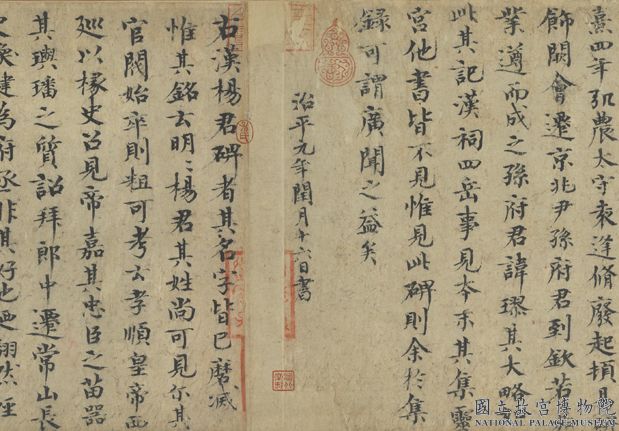 熹四年弘農太守袁逢脩廢起頓易
飾闕會遷京兆尹孫府君到欽若
業遵而成之孫府君諱璆其大略
此其記漢祠四岳事見本末其集靈
宮他書皆不見惟見此碑則余於集
録可謂廣聞之益矣
治平元年閏月十六日書
右漢楊君碑者其名字皆已磨滅
惟其銘云明明楊君其姓尚可見尔其
官閥始卒則粗可考云孝順皇帝西
廵以掾史召見帝嘉其忠臣之苗器
其璵璠之質詔拜郎中遷常山長
史換犍為府丞非其好也迺翻然輕
國立故宮博物院
NATIONAL PALACE MUSEUM